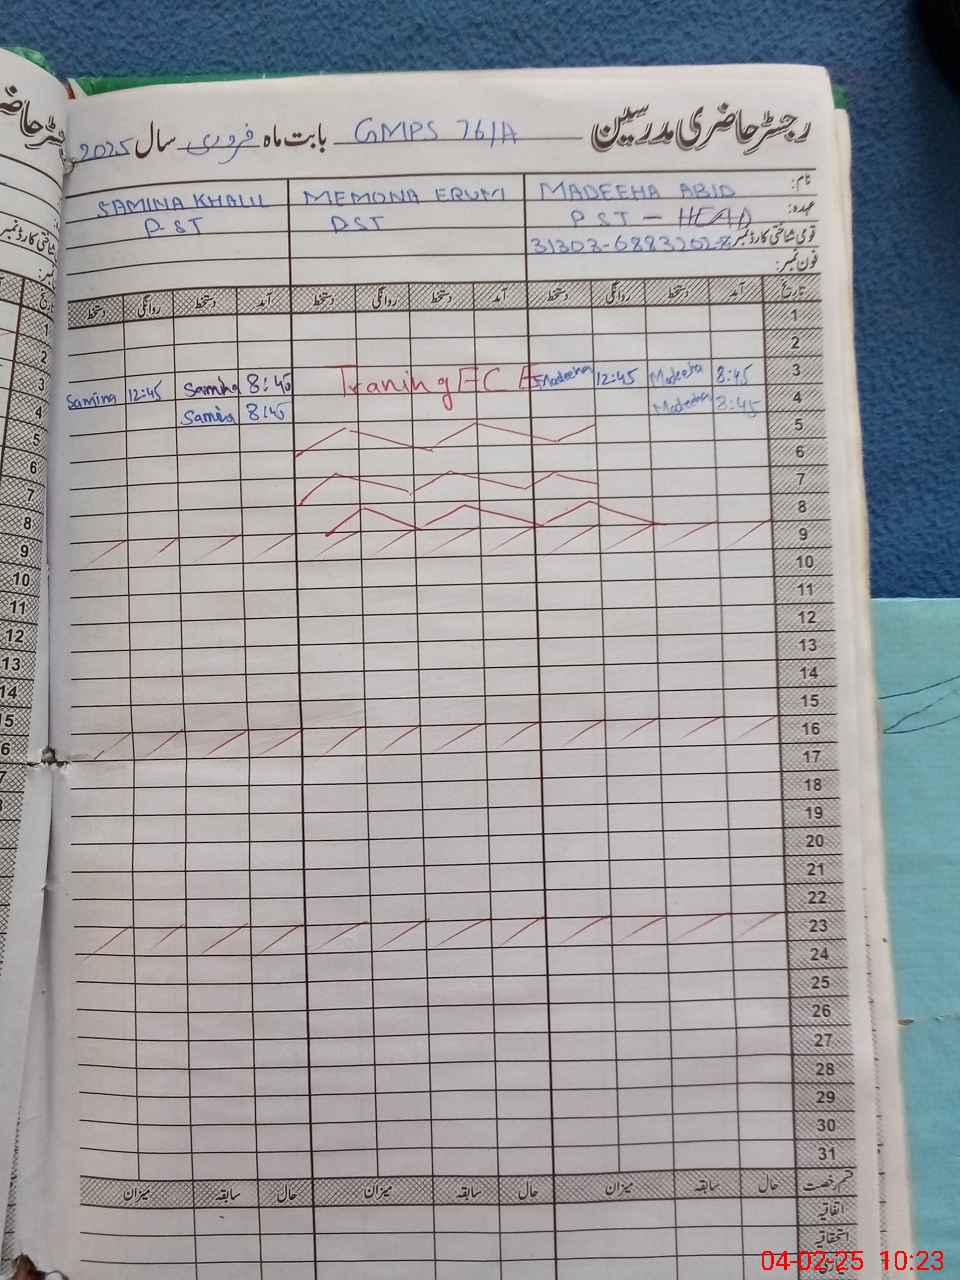 رجسٹر حاضری مدرسین GMPS 76/A بابت ماہ فروری سال 2025
نام: MADEEHA ABID MEMONA ERUM SAMINA KHALIL
عہدہ: PST - HEAD PST P-ST
قومی شناختی کارڈ نمبر
فون نمبر:
تاریخ آمد دستخط روانگی دستخط آمد دستخط روانگی دستخط آمد دستخط روانگی دستخط
1
2
3 8:45 Madeeha 12:45 Madeeha Traning ECE 8:45 Samina 12:45 Samina
4 8:45 Madeeha 8:45 Samina
5
6
7
8
9
10
11
12
13
14
15
16
17
18
19
20
21
22
23
24
25
26
27
28
29
30
31
قسم رخصت حال سابقہ میزان حال سابقہ میزان حال سابقہ میزان
اتفاقیہ
استحقاقیہ
04-02-25 10:23